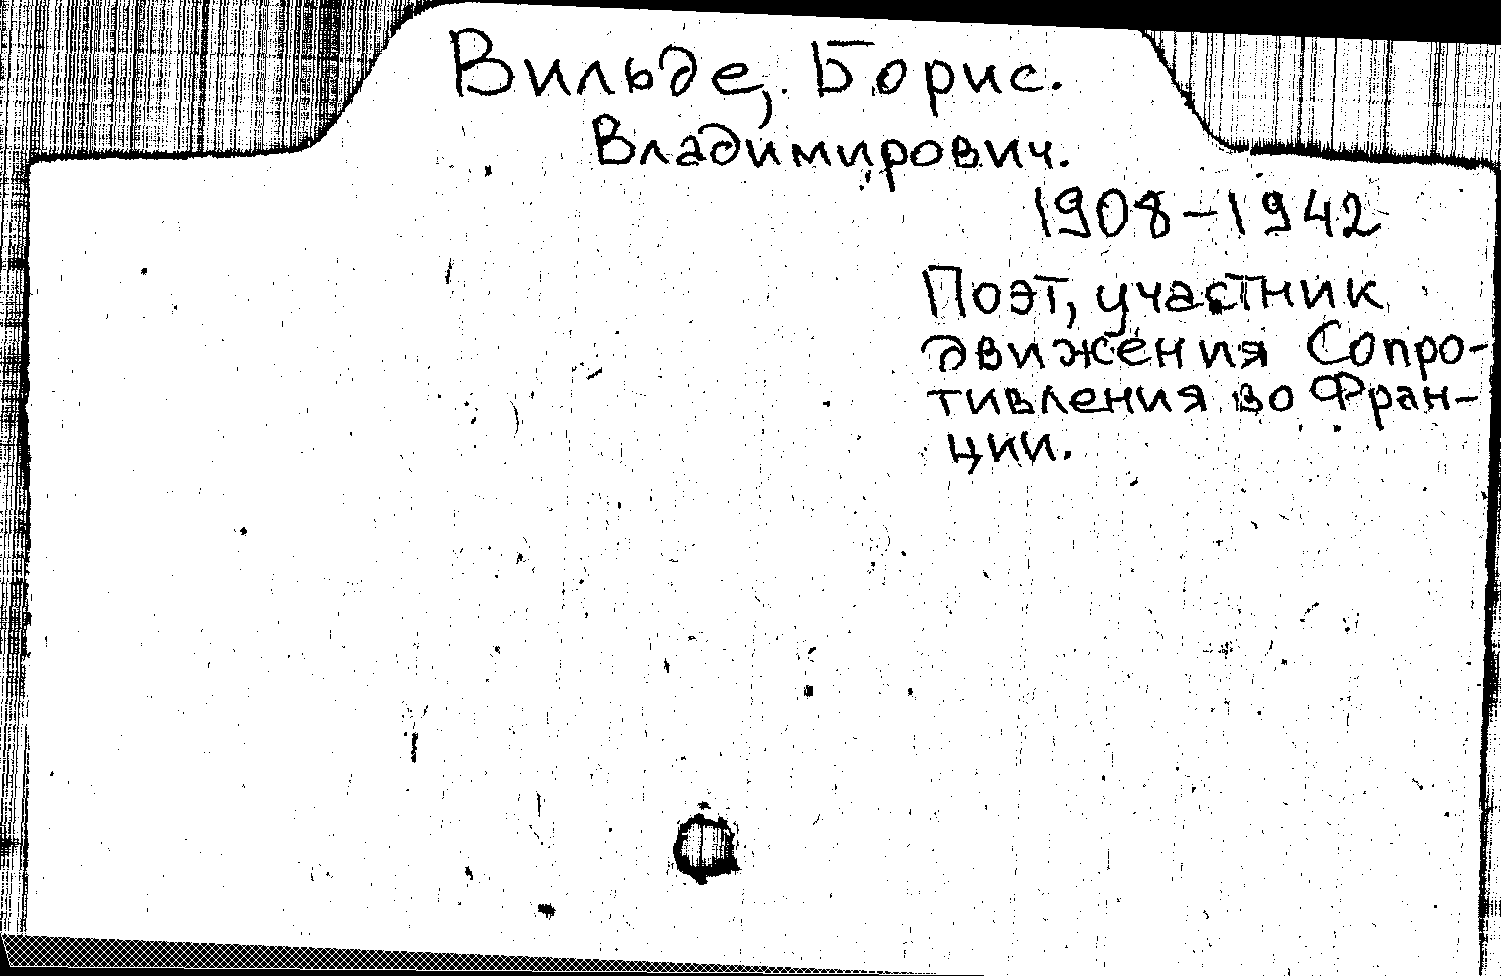 Вильде, Борис.
Владимирович.
1908-1942
Поэт, участник
движения Сопро-
тивления во Фран-
ции.